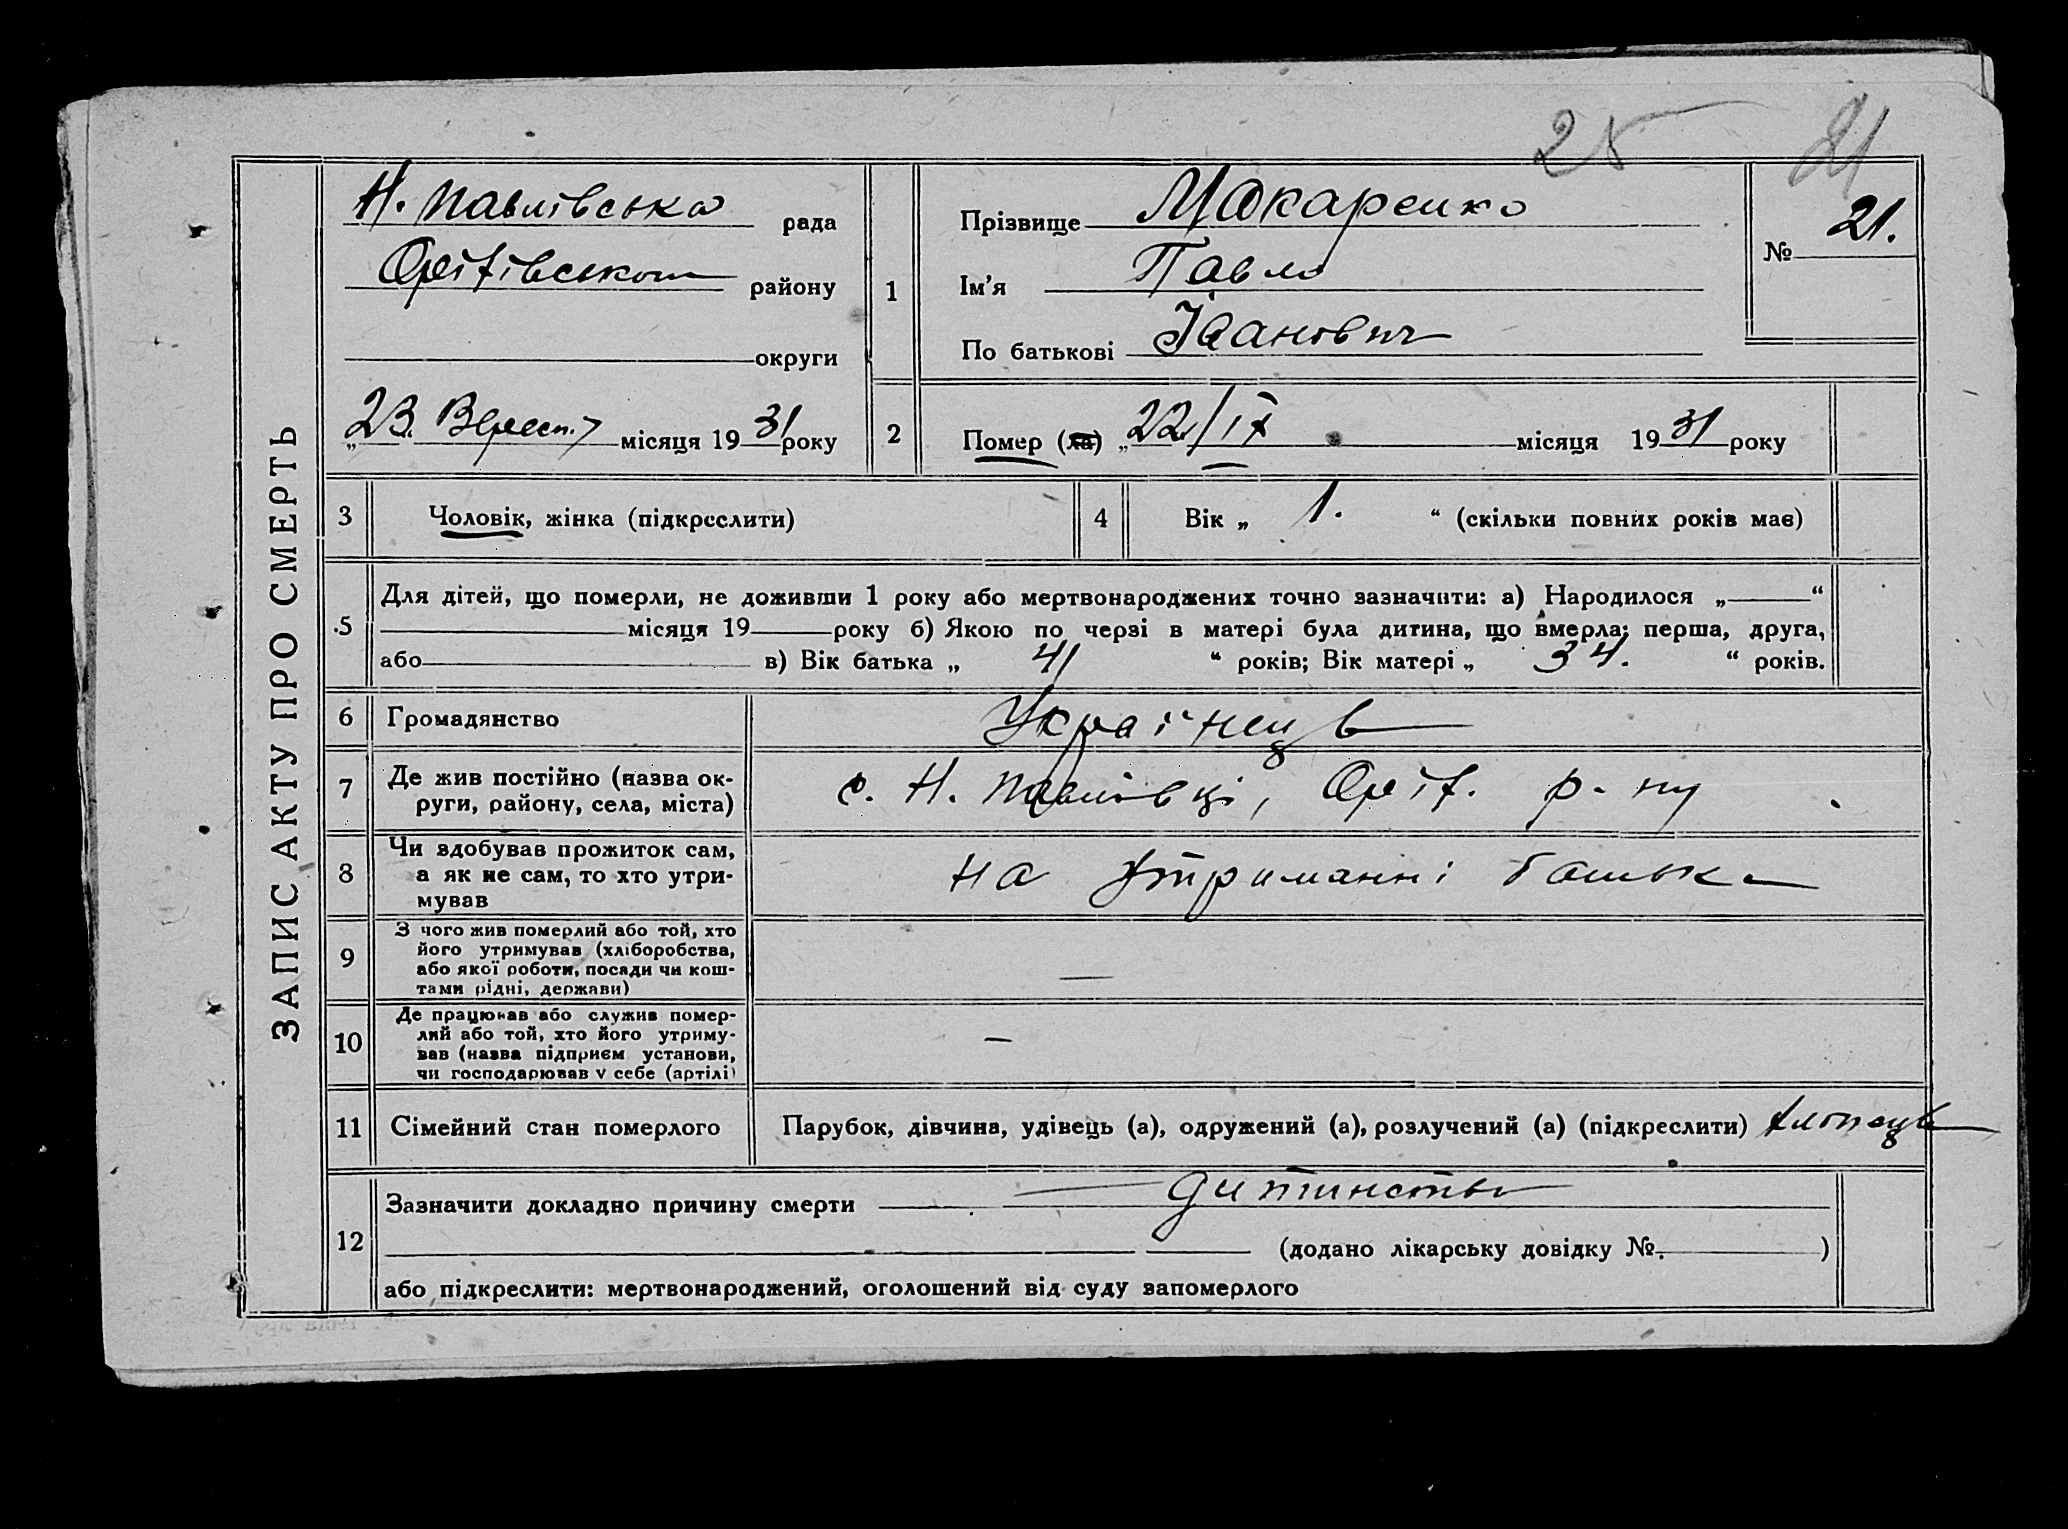 25 21
ЗАПИС АКТУ ПРО СМЕРТЬ
Н. Павлівська рада
Оріхівського району
округи
„23“ Вересн. місяця 1931 року
1
Прізвище Макаренко
Ім'я Павло
По батькові Іванович
№ 21.
2
Помер (ла) „22/IX місяця 1931 року
3 Чоловік, жінка (підкреслити)
4 Вік „ 1. “ (скільки повних років має)
5
Для дітей, що померли, не доживши 1 року або мертвонароджених точно зазначити: а) Народилося „ “
місяця 19 року б) Якою по черзі в матері була дитина, що вмерла: перша, друга,
або в) Вік батька „ 41 “ років; Вік матері „ 34. “ років.
6 Громадянство Українець
7 Де жив постійно (назва ок-
руги, району, села, міста)
с. Н. Павлівці, Оріх. р-ну
8 Чи здобував прожиток сам,
а як не сам, то хто утри-
мував
на утриманні батька
9 З чого жив померлий або той, хто
його утримував (хліборобства,
або якої роботи, посади чи кош-
тами рідні, держави)
—
10 Де працював або служив помер-
лий або той, хто його утриму-
вав (назва підприєм установи,
чи господарював у себе (артілі)
—
11 Сімейний стан померлого Парубок, дівчина, удівець (а), одружений (а), розлучений (а) (підкреслити) хлопець
12 Зазначити докладно причину смерти дитинство
(додано лікарську довідку №. )
або підкреслити: мертвонароджений, оголошений від суду запомерлого